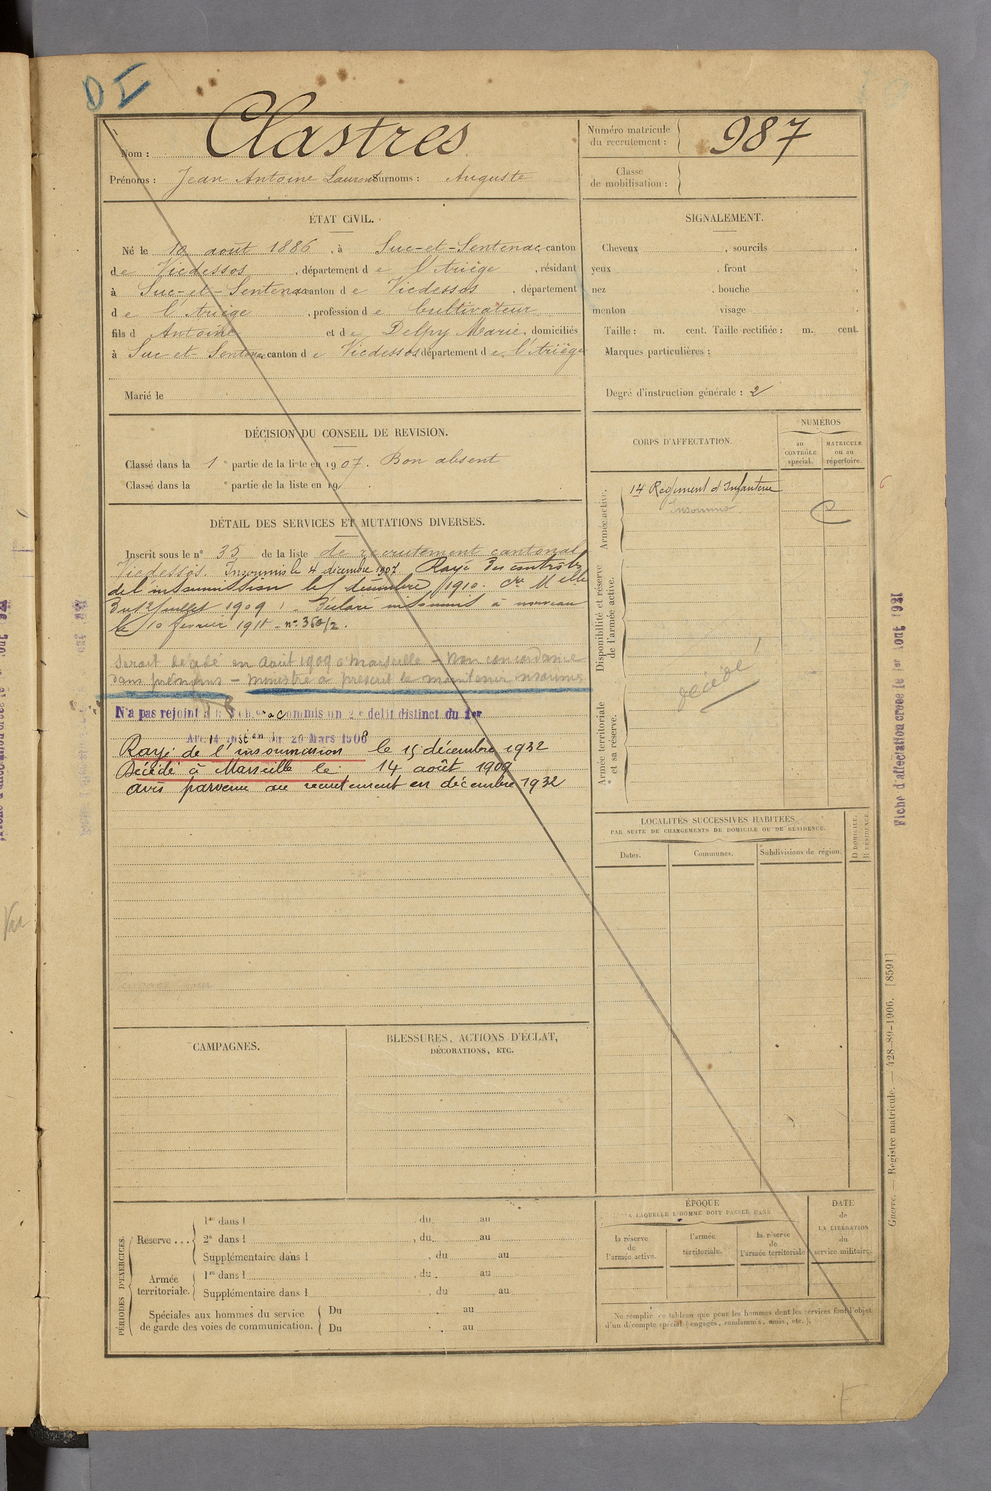 DI
Nom : Clastres
Numéro matricule du recrutement : 987
Prénoms : Jean Antoine Laurent Surnoms : Auguste
Classe de mobilisation :
ÉTAT CIVIL.
Né le 10 août 1886, à Suc-et-Sentenac canton
de Vicdessos, département de l'Ariège, résidant
à Suc-et-Sentenac canton de Vicdessos, département
de l'Ariège, profession de Cultivateur
fils d Antoine et de Delpy Marie, domiciliés
à Suc et Sentenac canton de Vicdessos département de l'Ariège
Marié le
SIGNALEMENT.
Cheveux , sourcils
yeux , front
nez , bouche
menton visage
Taille : m. cent. Taille rectifiée : m. cent.
Marques particulières :
Degré d'instruction générale : 2
DÉCISION DU CONSEIL DE REVISION.
Classé dans la 1e partie de la liste en 1907. Bon absent
Classé dans la e partie de la liste en 19 .
CORPS D'AFFECTATION.
NUMÉROS
au contrôle spécial.
MATRICULE ou au répertoire.
Armée active.
14 Régiment d'Infanterie
Insoumis
Disponibilité et réserve de l'armée active.
décédé !
Armée territoriale et sa réserve.
DÉTAIL DES SERVICES ET MUTATIONS DIVERSES.
Inscrit sous le n° 35 de la liste de recrutement cantonal
Vicdessos. Insoumis le 4 décembre 1907 Rayé des contrôles
de l'insoumission le décembre 1910.
du 12 juillet 1909. Déclaré insoumis à nouveau
le 10 février 1911 - n° 350/2.
Serait décédé en août 1909 à Marseille - Non concordance
dans prénoms - ministre a prescrit le maintenir insoumis
N'a pas rejoint a commis un délit distinct du 1er
Art. 14 du 20 Mars 1908
Rayé de l'insoumission le 15 décembre 1932
Décédé à Marseille le 14 août 1909
avis parvenu au recrutement en décembre 1932
LOCALITÉS SUCCESSIVES HABITÉES
PAR SUITE DE CHANGEMENTS DE DOMICILE OU DE RÉSIDENCE.
Dates.
Communes.
Subdivisions de région.
D DOMICILE.
R RÉSIDENCE.
CAMPAGNES.
BLESSURES, ACTIONS D'ÉCLAT,
DÉCORATIONS, ETC.
PÉRIODES D'EXERCICES.
Réserve ...
1re dans l , du au
2e dans l , du au
Supplémentaire dans l , du au
Armée territoriale.
1re dans l , du au
Supplémentaire dans l , du au
Spéciales aux hommes du service de garde des voies de communication.
Du au
Du au
ÉPOQUE
À LAQUELLE L'HOMME DOIT PASSER DANS
la réserve de l'armée active.
l'armée territoriale.
la réserve de l'armée territoriale
DATE de LA LIBÉRATION du service militaire.
Ne remplir ce tableau que pour les hommes dont les services font l'objet
d'un décompte spécial (engagés, condamnés, omis, etc.).
Fiche d'affectation créée le 1er Août 1931
Guerre. — Registre matricule. — 428-89-1906. [8591]
Vu